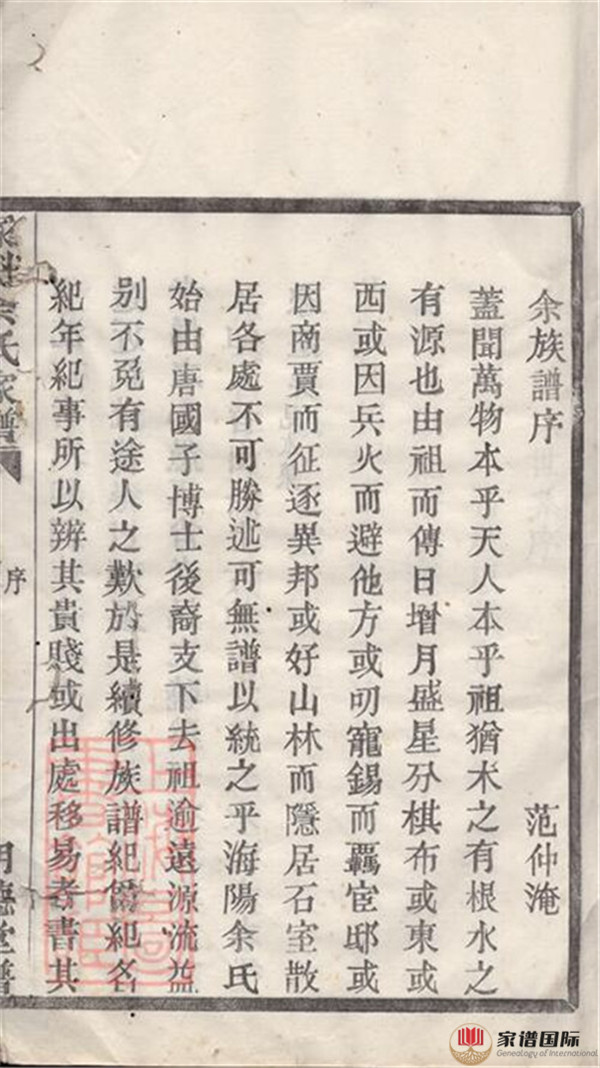 余族譜序 范仲淹
蓋聞萬物本乎天人本乎祖猶木之有根水之
有源也由祖而傳日增月盛星分棋布或東或
西或因兵火而避他方或叨寵錫而羈宦邸或
因商賈而征逐異邦或好山林而隱居石室散
居各處不可勝述可無譜以統之乎海陽余氏
始由唐國子博士後裔支下去祖逾遠源流益
别不免有途人之歎於是續修族譜紀爵紀名
紀年紀事所以辨其貴賤或出處移易考書其
余氏家譜
序
明德堂譜
家谱国际
Genealogy of International